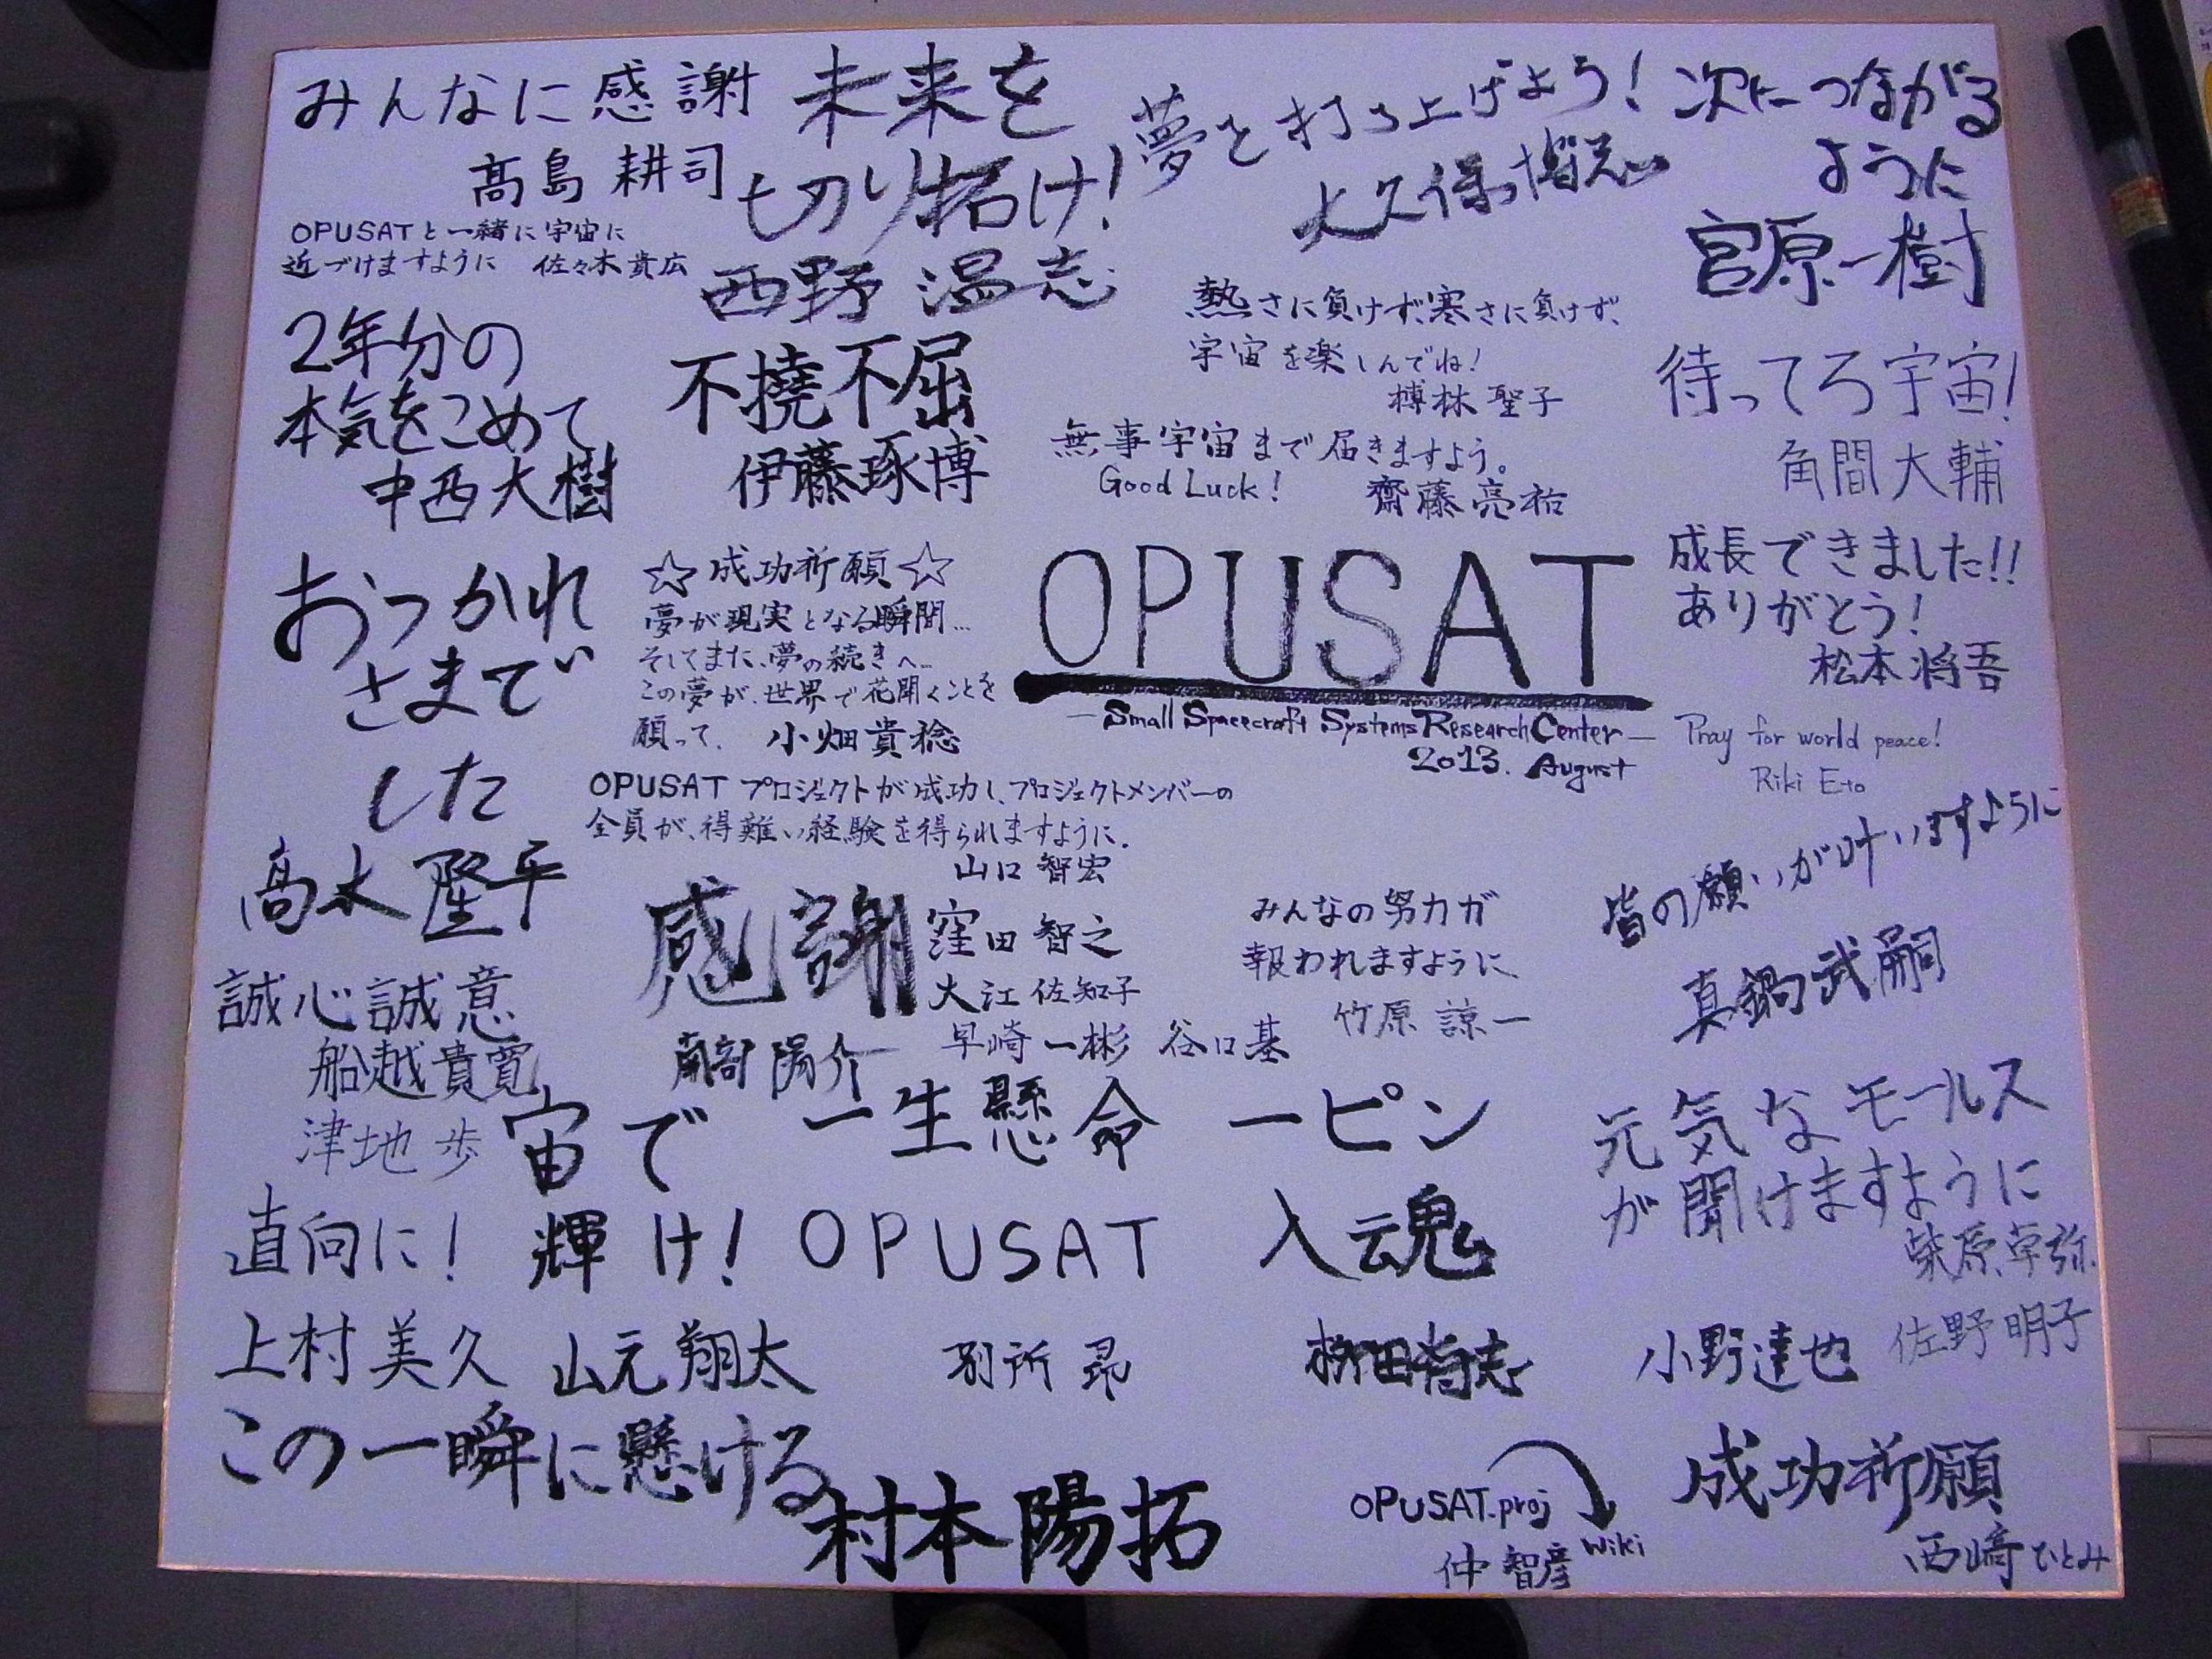 みんなに感謝
髙島 耕司
OPUSATと一緒に宇宙に
近づけますように 佐々木貴広
未来を
切り拓け!
西野 温志
夢を打ち上げよう!
大久保 博志
次につながる
ように
宮原一樹
2年分の
本気をこめて
中西大樹
不撓不屈
伊藤琢博
熱さに負けず、寒さに負けず、
宇宙を楽しんでね!
榑林 聖子
無事宇宙まで届きますよう。
Good Luck!
齋藤 亮祐
待ってろ宇宙!
角間大輔
おつかれ
さまで
した
髙木 隆平
☆成功祈願☆
夢が現実となる瞬間...
そしてまた、夢の続きへ...
この夢が、世界で花開くことを
願って、 小畑貴稔
OPUSAT
—Small Spacecraft Systems Research Center—
2013. August
成長できました!!
ありがとう!
松本将吾
Pray for world peace!
Riki Eto
OPUSATプロジェクトが成功し、プロジェクトメンバーの
全員が、得難い経験を得られますように.
山口 智宏
感謝
南部 陽介
窪田 智之
大江 佐知子
早崎 一彬 谷口 基
みんなの努力が
報われますように、
竹原 諒一
皆の願いが叶いますように
真鍋武嗣
誠心誠意
船越貴寛
津地 歩
直向に!
上村 美久
宙で
輝け!
山元 翔太
一生懸命
OPUSAT
別所 昴
一ピン
入魂
柳田尚志
元気なモールス
が聞けますように
柴原卓弥
小野達也 佐野明子
この一瞬に懸ける
村本 陽拓
OPUSAT.proj
Wiki
仲 智彦
成功祈願
西崎ひとみ